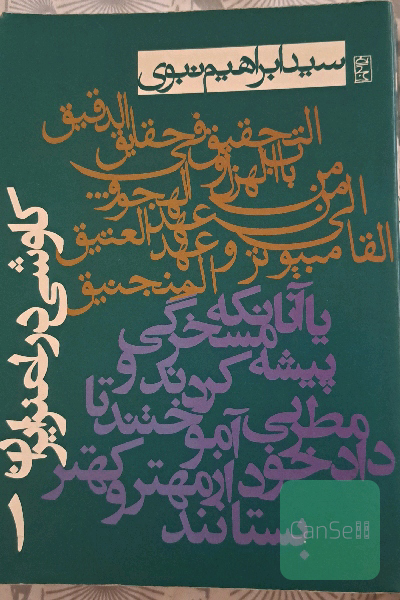 سید ابراهیم نبوی
التحقیق فی حقایق الدقیق
باب الهزل و الهجو
من عهد العتیق
الی القامبیوتر و عهد المنجنیق
یا آنانکه مسخرگی
پیشه کردند و
مطربی آموختند تا
داد خود از مهتر و کهتر
بستانند
کاوشی در طنز ایران
۱
CanSell